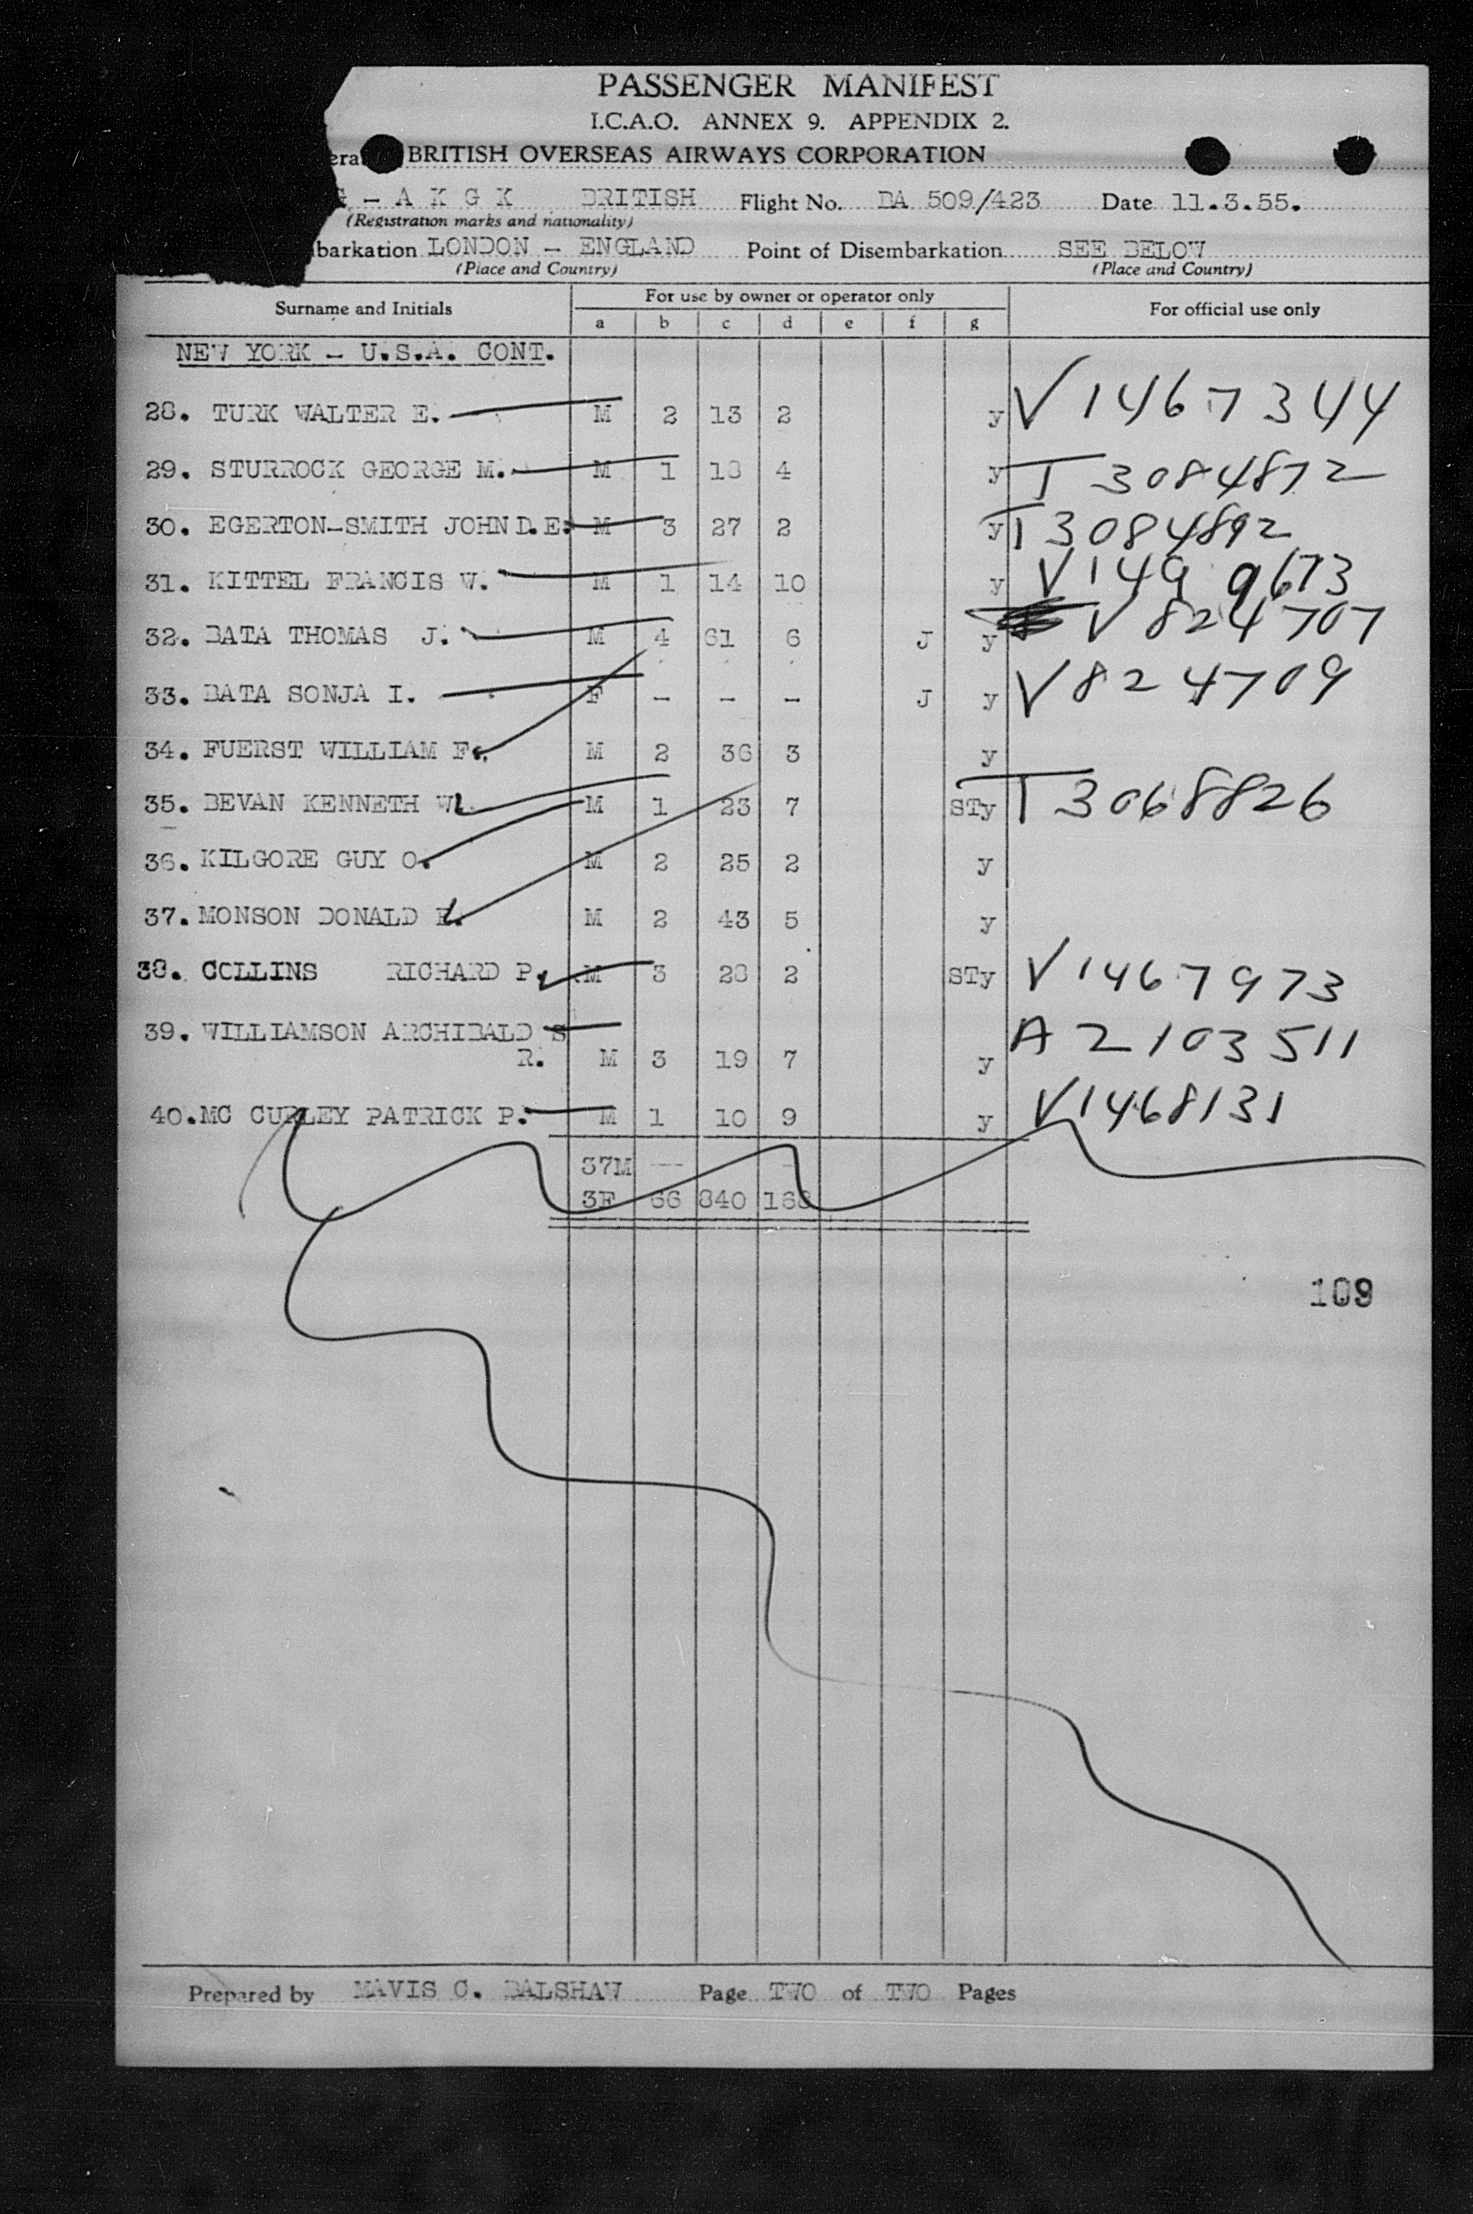 PASSENGER MANIFEST
I.C.A.O. ANNEX 9. APPENDIX 2.
BRITISH OVERSEAS AIRWAYS CORPORATION
G - A K G K BRITISH Flight No. BA 509/423 Date 11.3.55.
(Registration marks and nationality)
barkation LONDON - ENGLAND Point of Disembarkation SEE BELOW
(Place and Country) (Place and Country)
Surname and Initials For use by owner or operator only For official use only
a b c d e f g
NEW YORK - U.S.A. CONT.
28. TURK WALTER E. M 2 13 2 y V1467344
29. STURROCK GEORGE M. M 1 18 4 y T 3084872
30. EGERTON-SMITH JOHN D.E. M 3 27 2 y T3084892
31. KITTEL FRANCIS W. M 1 14 10 y V1499673
32. BATA THOMAS J. M 4 61 6 J y V824707
33. BATA SONJA I. F - - - J y V824709
34. FUERST WILLIAM F. M 2 36 3 y
35. BEVAN KENNETH W. M 1 23 7 STy T3068826
36. KILGORE GUY O. M 2 25 2 y
37. MONSON DONALD E. M 2 43 5 y
38. COLLINS RICHARD P. M 3 28 2 STy V1467973
39. WILLIAMSON ARCHIBALD S A2103511
R. M 3 19 7 y
40. MC CURLEY PATRICK P. M 1 10 9 y V1468131
37M
3F 66 840 168
109
Prepared by MAVIS C. BALSHAW Page TWO of TWO Pages